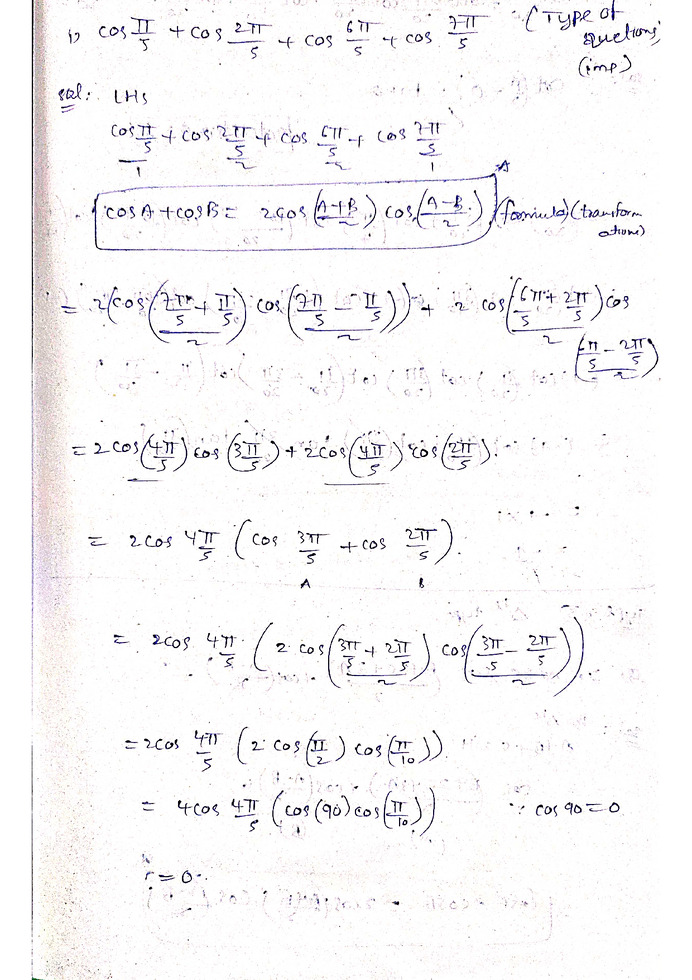 1) cos π/5 + cos 2π/5 + cos 6π/5 + cos 7π/5 (Type of
(imp)
sol: LHS
cos π/5 + cos 2π/5 + cos 6π/5 + cos 7π/5
1 2 2 1
A
cosA + cosB = 2cos (A+B/2) cos (A-B/2) (formula) (transform
ations)
= 2(cos (7π/5 + π/5 / 2) cos (7π/5 - π/5 / 2)) + 2 cos (6π/5 + 2π/5 / 2) cos
(6π/5 - 2π/5 / 2)
= 2cos (4π/5) cos (3π/5) + 2cos (4π/5) cos (2π/5).
= 2cos 4π/5 (cos 3π/5 + cos 2π/5).
A B
= 2cos 4π/5 (2 cos (3π/5 + 2π/5 / 2) cos (3π/5 - 2π/5 / 2))
= 2cos 4π/5 (2 cos (π/2) cos (π/10))
= 4cos 4π/5 (cos (90) cos (π/10)) ∵ cos 90 = 0
= 0.